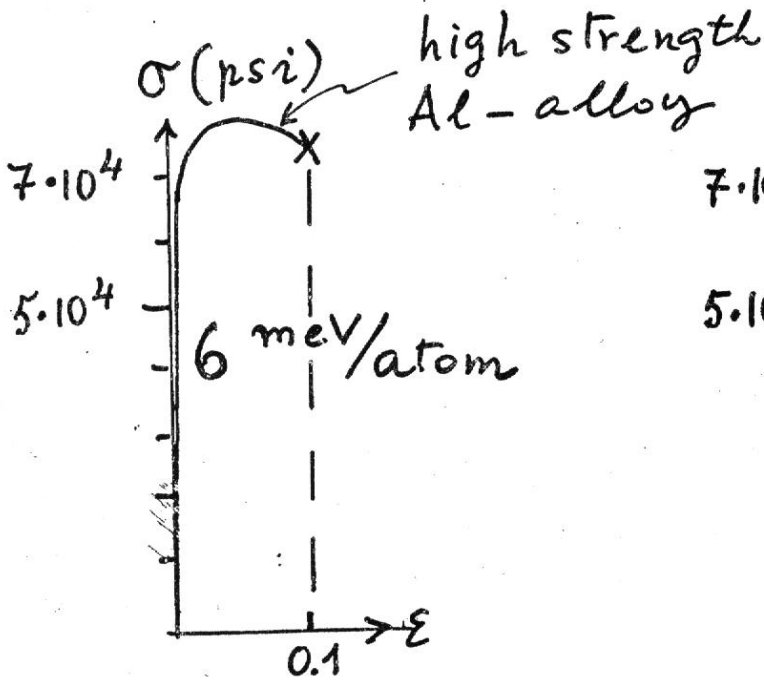 σ (psi)
high strength
Al - alloy
7·10⁴
7·1
5·10⁴
5·10
6 meV/atom
0.1
ε